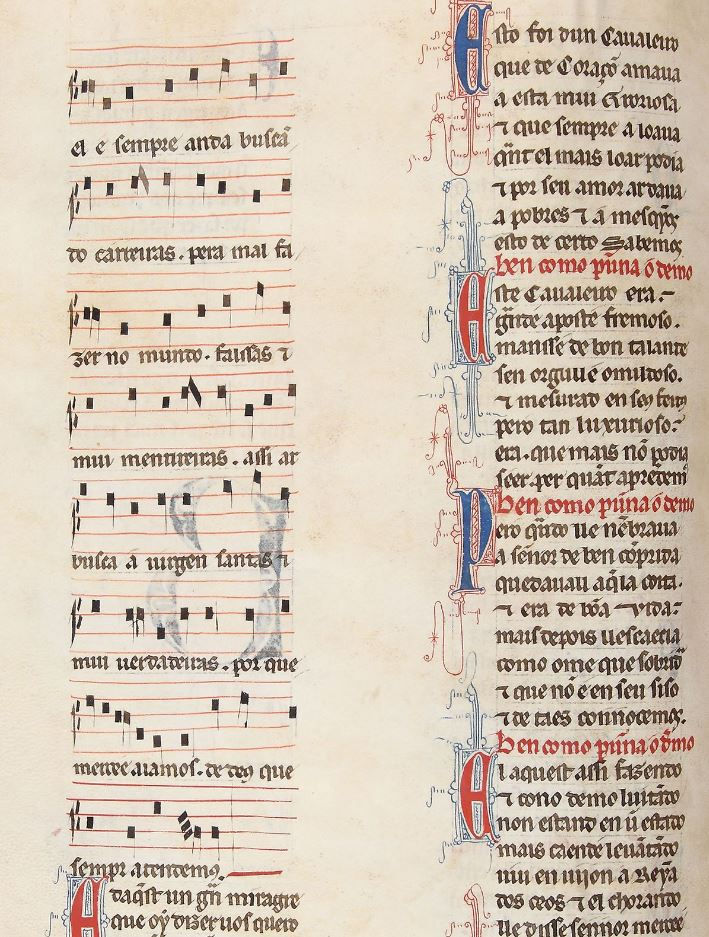 el e sempre anda buscã
do carreiras. pera mal fa
zer no mundo. falssas ⁊
mui mentireiras. assi ar
busca a uirgen santas ⁊
mui uerdadeiras. por que
mercee aiamos. de deꝯ que
sempr atendemꝯ.
daq̃st un grã miragre
que oy dizer uos quero
Esto foi dun Caualeiro
que de Coraçõ amaua
a esta mui Groriosa
⁊ que sempre a loaua
quãt el mais loar podia
⁊ por seu amor ar daua
a pobres ⁊ a mesqỹos
esto de certo Sabemꝯ
ben como pũna o demo
Este Caualeiro era.
grãde aposte fremoso.
manss e de bon talante
sen orgull e omildoso.
⁊ mesurad en
pero tan luxurioso.
era. que mais nõ podia
seer. per quãt aprẽdemꝯ
ben como pũna o demo
Pero quãdo lle nẽbraua
a señor de ben cõprida
quedauass aq̃la coita.
⁊ era de bõa vida.
mais depois llescaecia
como ome que soberuia
⁊ que nõ é en seu siso
⁊ de taes connocemꝯ.
ben como pũna o demo
El aquest assi fazendo
⁊ como demo luitãdo
non estand en ũ estado
mais caend e leuãtãdo
uiu en uijon a Reỹa
dos ceos ⁊ el chorando
lle disse sennor mercee